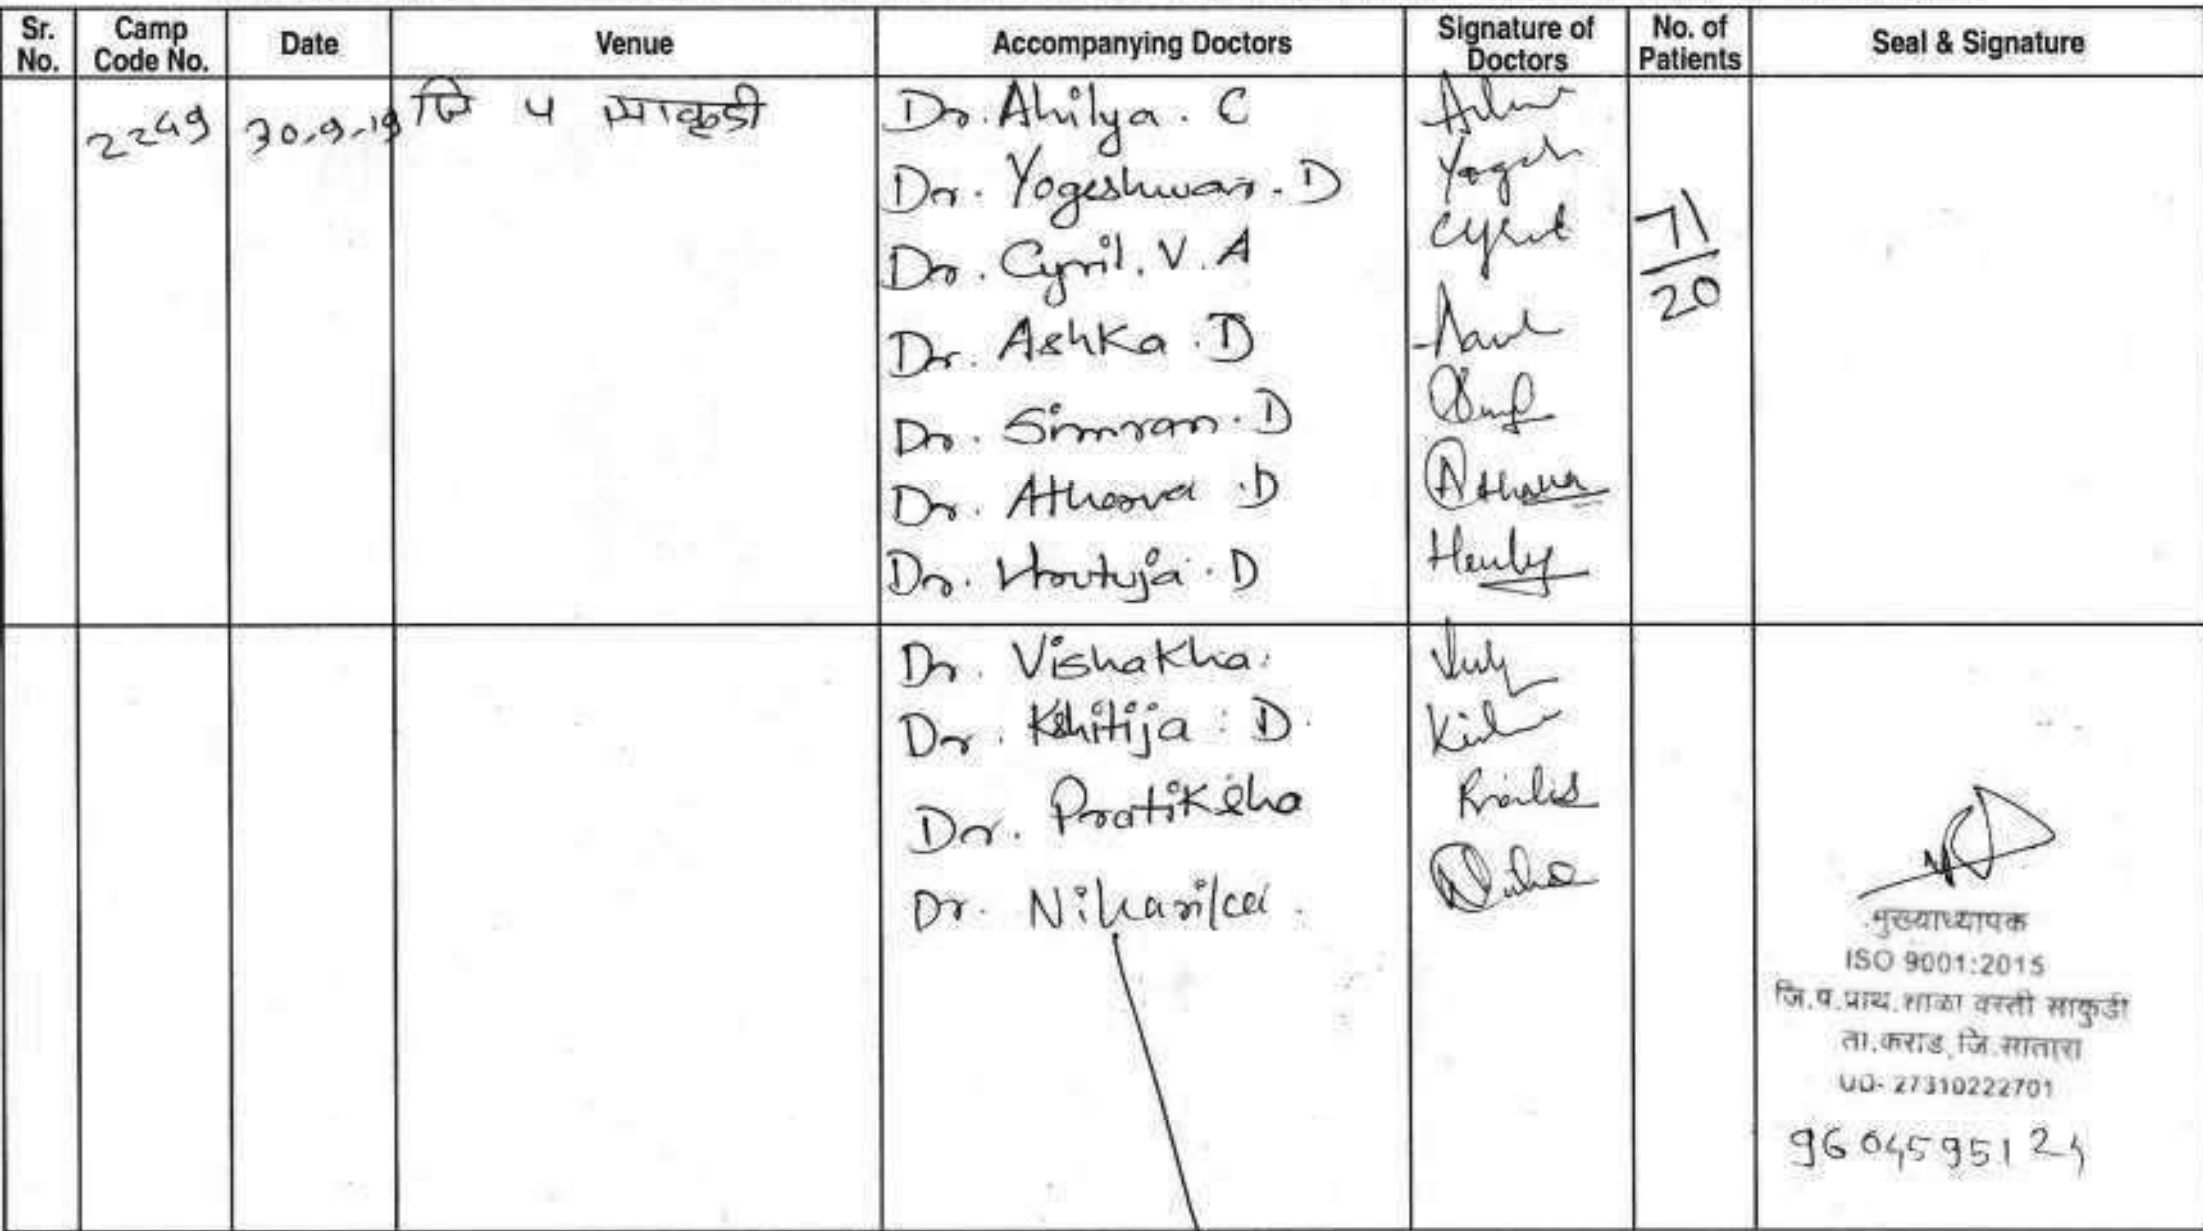 Sr. No. Camp Code No. Date Venue Accompanying Doctors Signature of Doctors No. of Patients Seal & Signature
2249 30.9.19 जि प साकुडी Dr. Ahilya. C
Dr. Yogeshwar. D Yogesh
Dr. Cyril. V. A Cyril
71
20
Dr. Ashka. D
Dr. Simran. D
Dr. Atharva .D Atharva
Dr. Hrutuja. D
Dr. Vishakha.
Dr. Kshitija. D.
Dr. Pratiksha
Dr. Niharika.
मुख्याध्यापक
ISO 9001:2015
जि.प.प्राथ.शाळा वस्ती साकुडी
ता.कराड, जि.सातारा
UD- 27310222701
9604595124